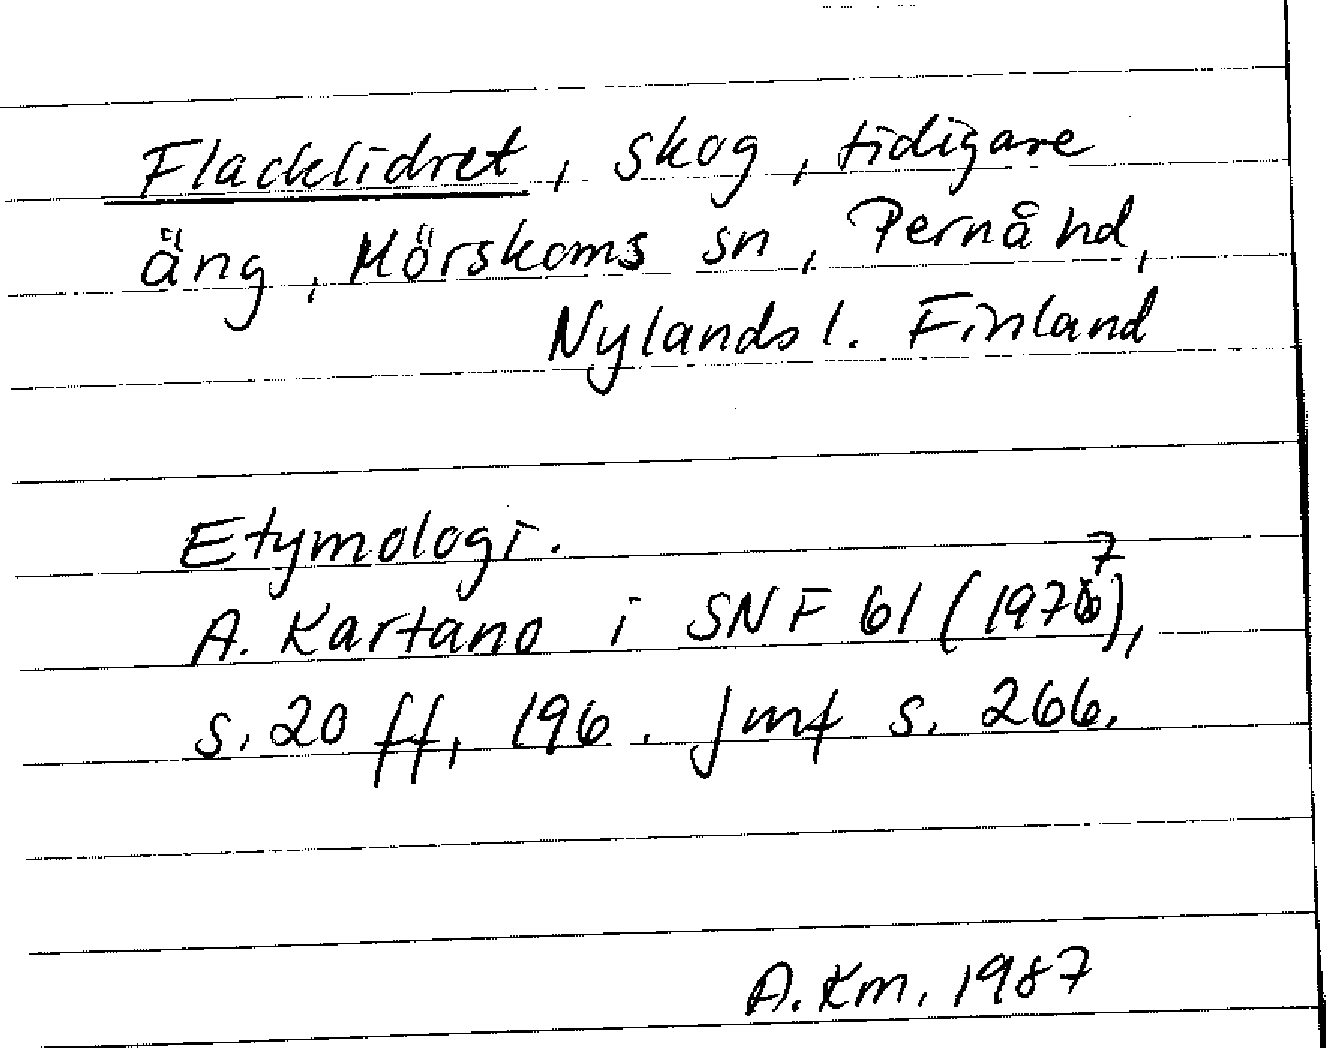 Flacklidret, skog, tidigare
äng, Mörskoms sn, Pernå hd,
Nylands l. Finland
Etymologi.
A. Kartano i SNF 61 (1977),
s. 20 ff, 196. Jmf s. 266.
A. Km. 1987